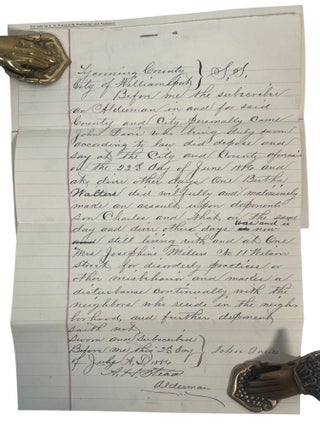 Lycoming County } S.S.
City of Williamsport
Before me the subscriber
an Alderman in and for said
County and City personally Came
John Davis who being duly sworn
according to law did depose and
say at the City and County aforesaid
on the 22d day of June 1886 and
at divers other days One Bertha
Walters did wilfully and maliciously
made an assault upon deponents
son Charles and that on the same
day and divers others days was and is
now still living with and at One
Mrs Josephine Millers No 11 Wilson
Street for disorderly practices or
other misbehavior and makes a
disturbance Continually with the
neighbors who reside in the neigh
borhood, and further deponent
saith not
Sworn and Subscribed
Before me this 2d day
of July A.D. 1886
John Davis
A. H. Stead
Alderman